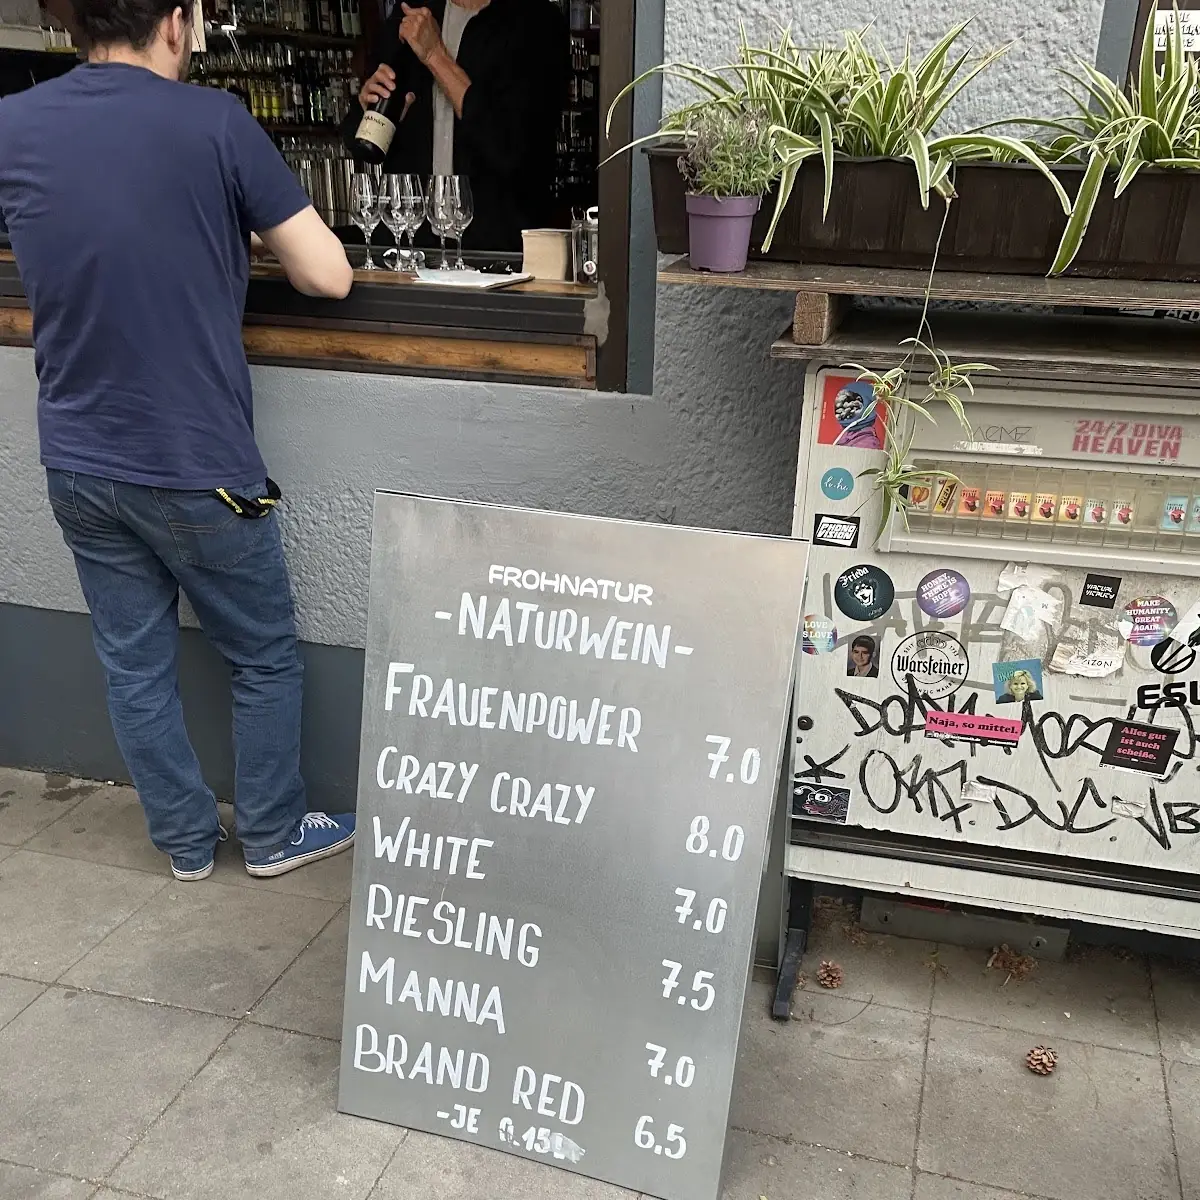 FROHNATUR
-NATURWEIN-
FRAUENPOWER 7.0
CRAZY CRAZY 8.0
WHITE 7.0
RIESLING 7.5
MANNA 7.0
BRAND RED 6.5
-JE 0.15L
ACME
24/7 DIVA
HEAVEN
PHONO
VISION
Frieda
HONEY,
THERE IS
HOPE
VIRTUAL
MAKE
HUMANITY
GREAT
AGAIN.
LOVE
IS LOVE
Warsteiner
Naja, so mittel.
Alles gut
ist auch
scheiße.
ESL
DUC